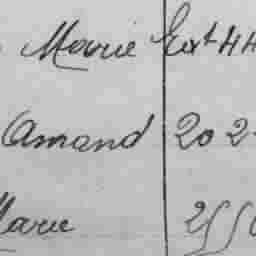 Marie Ext 44
Amand 20 2
Marie 255